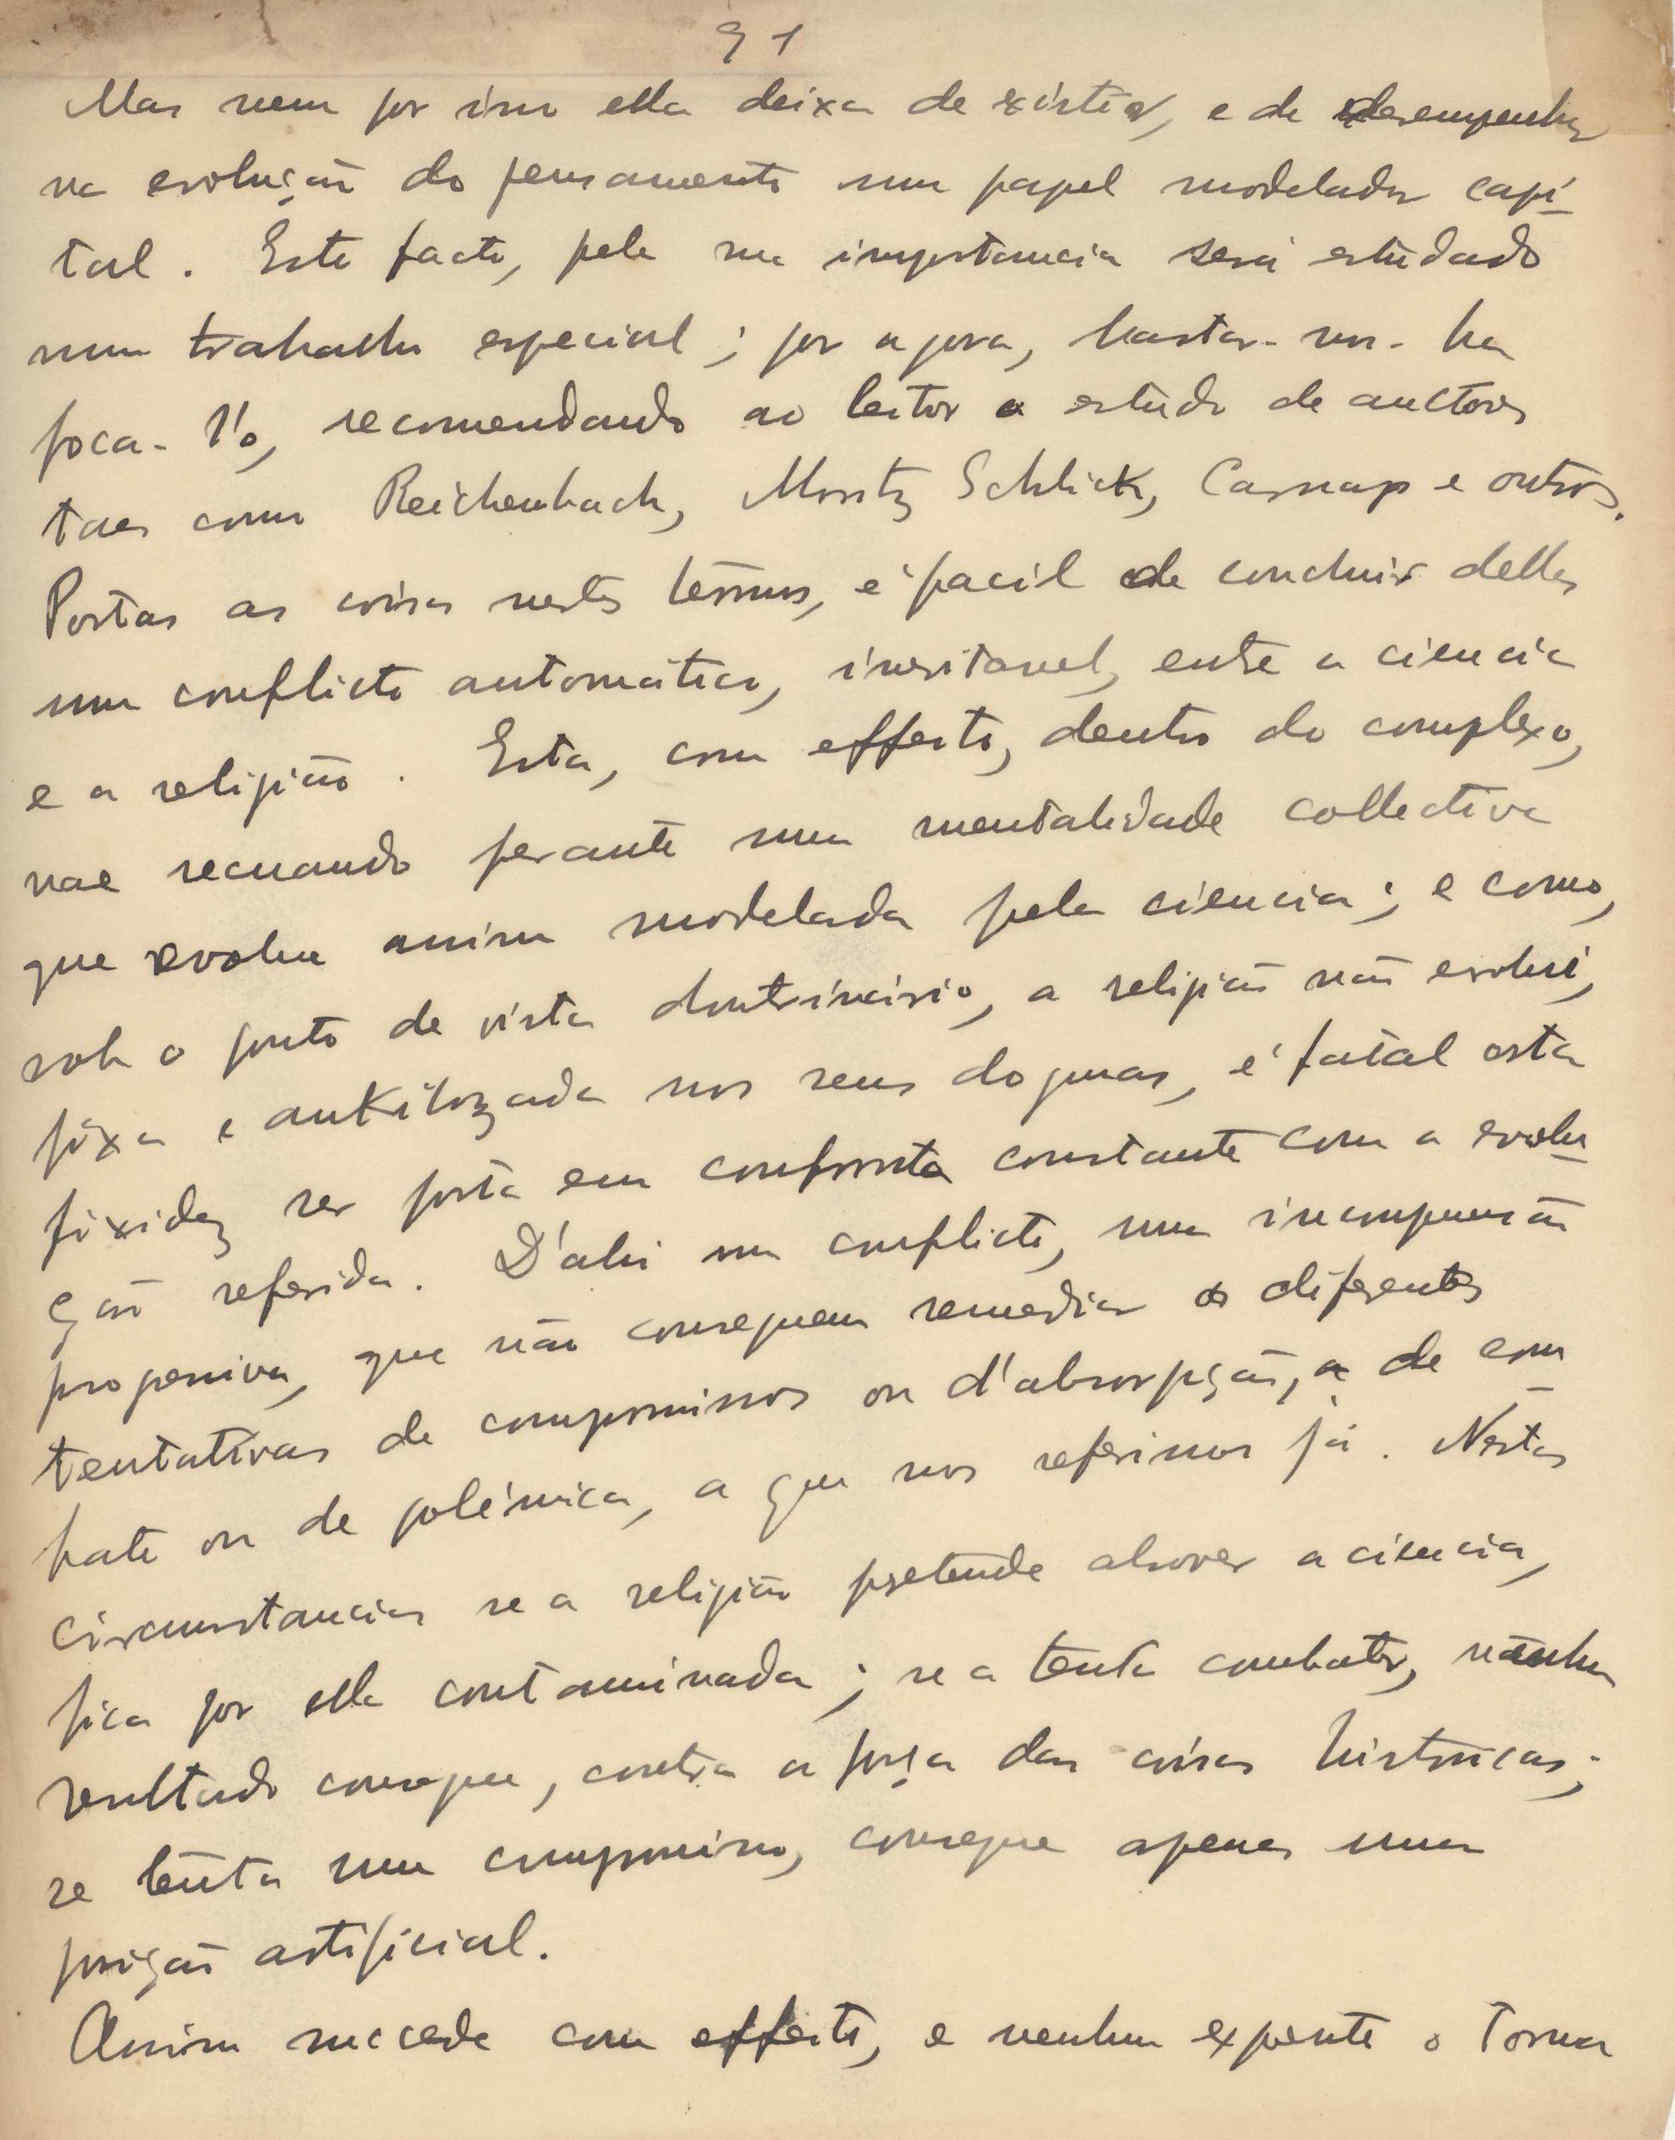 91
Mas nem por isso ella deixa de existir, e de desempenhar
na evolução do pensamento um papel modelador capi-
tal. Este facto, pela sua importancia será estudado
num trabalho especial; por agora, bastar-nos-ha
foca-l'o, recomendando ao leitor o estudo de auctores
taes como Reichenbach, Moritz Schlick, Carnap e outros.
Postas as coisas nestes termos, é facil de concluir delles
um conflicto automático, inevitavel, entre a ciencia
e a religião. Esta, com effeito, dentro do complexo,
vae recuando perante uma mentalidade collectiva
que evolue assim modelada pela ciencia; e como,
sob o ponto de vista doutrinário, a religião não evolui,
fixa e ankilozada nos seus dogmas, é fatal esta
fixidez ser posta em confronto constante com a evolu-
ção referida. D'ahi um conflicto, uma incompreensão
progressiva, que não conseguem remediar as diferentes
tentativas de compromissos ou d'absorpção, a de com-
bate ou de polémica, a que nos referimos já. Nestas
circumstancias se a religião pretende absorver a ciencia,
fica por ella contaminada; se a tenta combater, nenhum
resultado consegue, contra a força das coisas historicas;
se tenta um compromisso, consegue apenas uma
posição artificial.
Assim succede com effeito, e nenhum expoente o torna